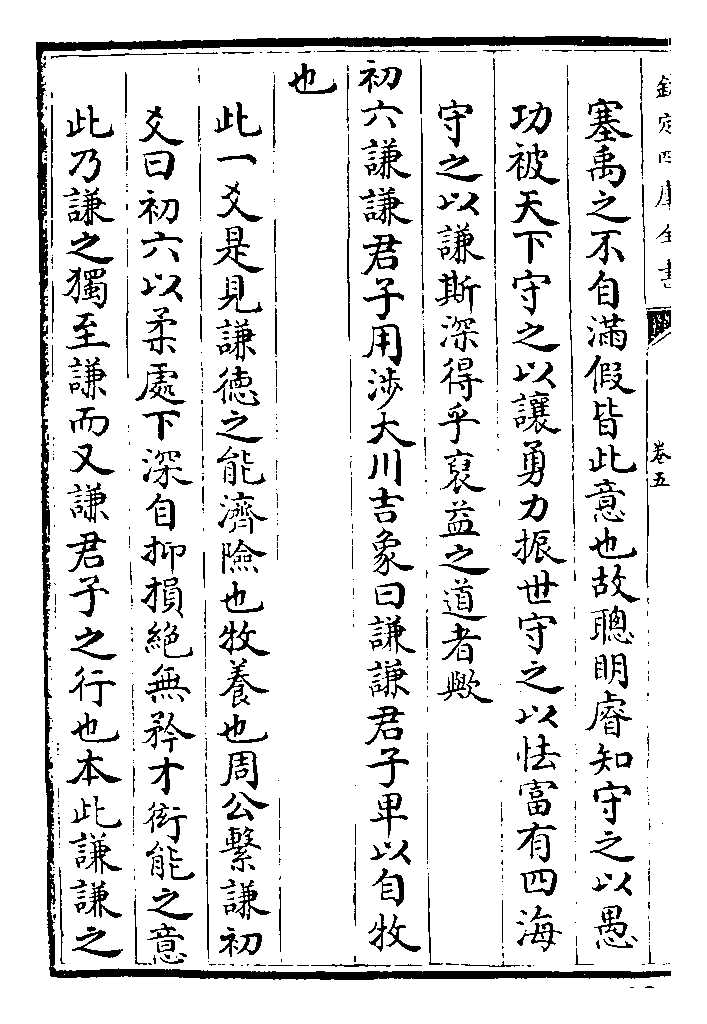 欽定四庫全書
卷五
塞禹之不自滿假皆此意也故聰明睿知守之以愚
功被天下守之以讓勇力振世守之以怯富有四海
守之以謙斯深得乎裒益之道者歟
初六謙謙君子用涉大川吉象曰謙謙君子卑以自牧
也
此一爻是見謙德之能濟險也牧養也周公繫謙初
爻曰初六以柔處下深自抑損絕無矜才衒能之意
此乃謙之獨至謙而又謙君子之行也本此謙謙之